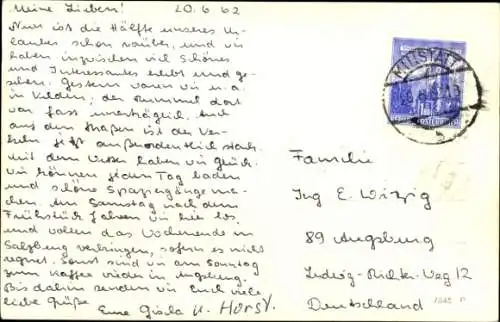 Meine Lieben! 20.6.62
Nun ist die Hälfte unseres Ur-
laubes schon vorüber, und wir
haben inzwischen viel Schönes
und Interessantes erlebt und ge-
sehen. Gestern waren wir u. a.
in Velden; der Rummel dort
war fast unerträglich. Auch
auf den Straßen ist der Ver-
kehr jetzt außerordentlich stark.
Mit dem Wetter haben wir Glück.
Wir können jeden Tag baden
und schöne Spaziergänge ma-
chen. Am Samstag nach dem
Frühstück fahren wir hier los
und wollen das Wochenende in
Salzburg verbringen, sofern es nicht
regnet. Sonst sind wir am Sonntag
zum Kaffee wieder in Augsburg.
Bis dahin senden wir Euch viele
liebe Grüße
Eure Gisela u. Horst.
MILLSTATT
REPUBLIK ÖSTERREICH
Familie
Ing E. Witzig
89 Augsburg
Ludwig-Richter-Weg 12
Deutschland